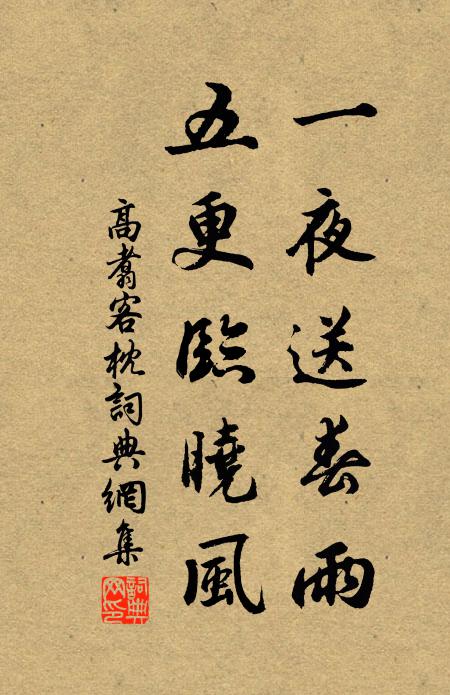 一夜送春雨
五更臨曉風
高翥客枕詞典網集
詞典
网印